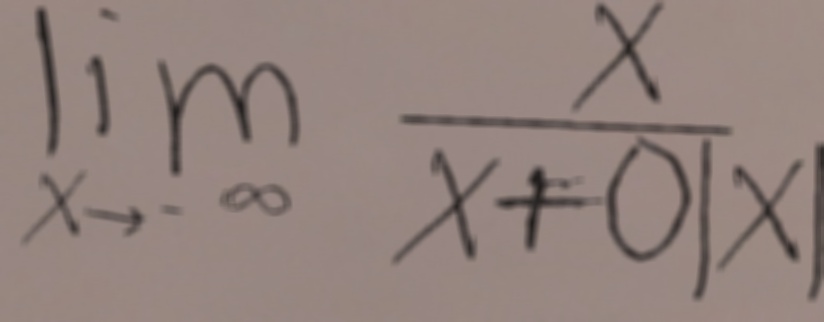 \lim_{x \to -\infty} \frac{x}{x + 0|x|}